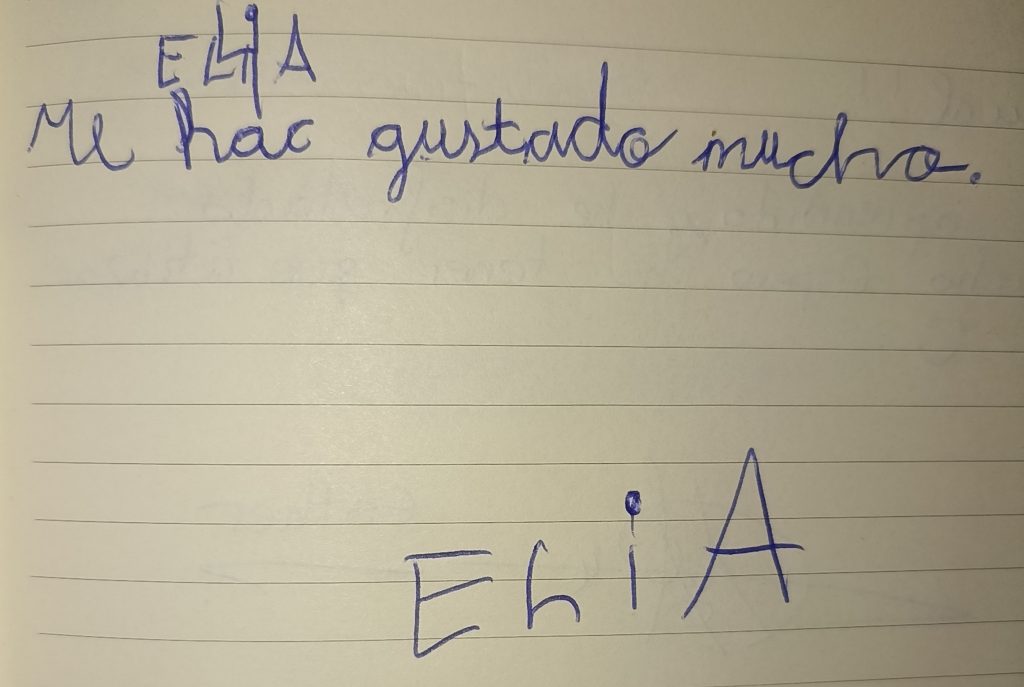 ELiA
Me hac gustado mucho.
EhiA